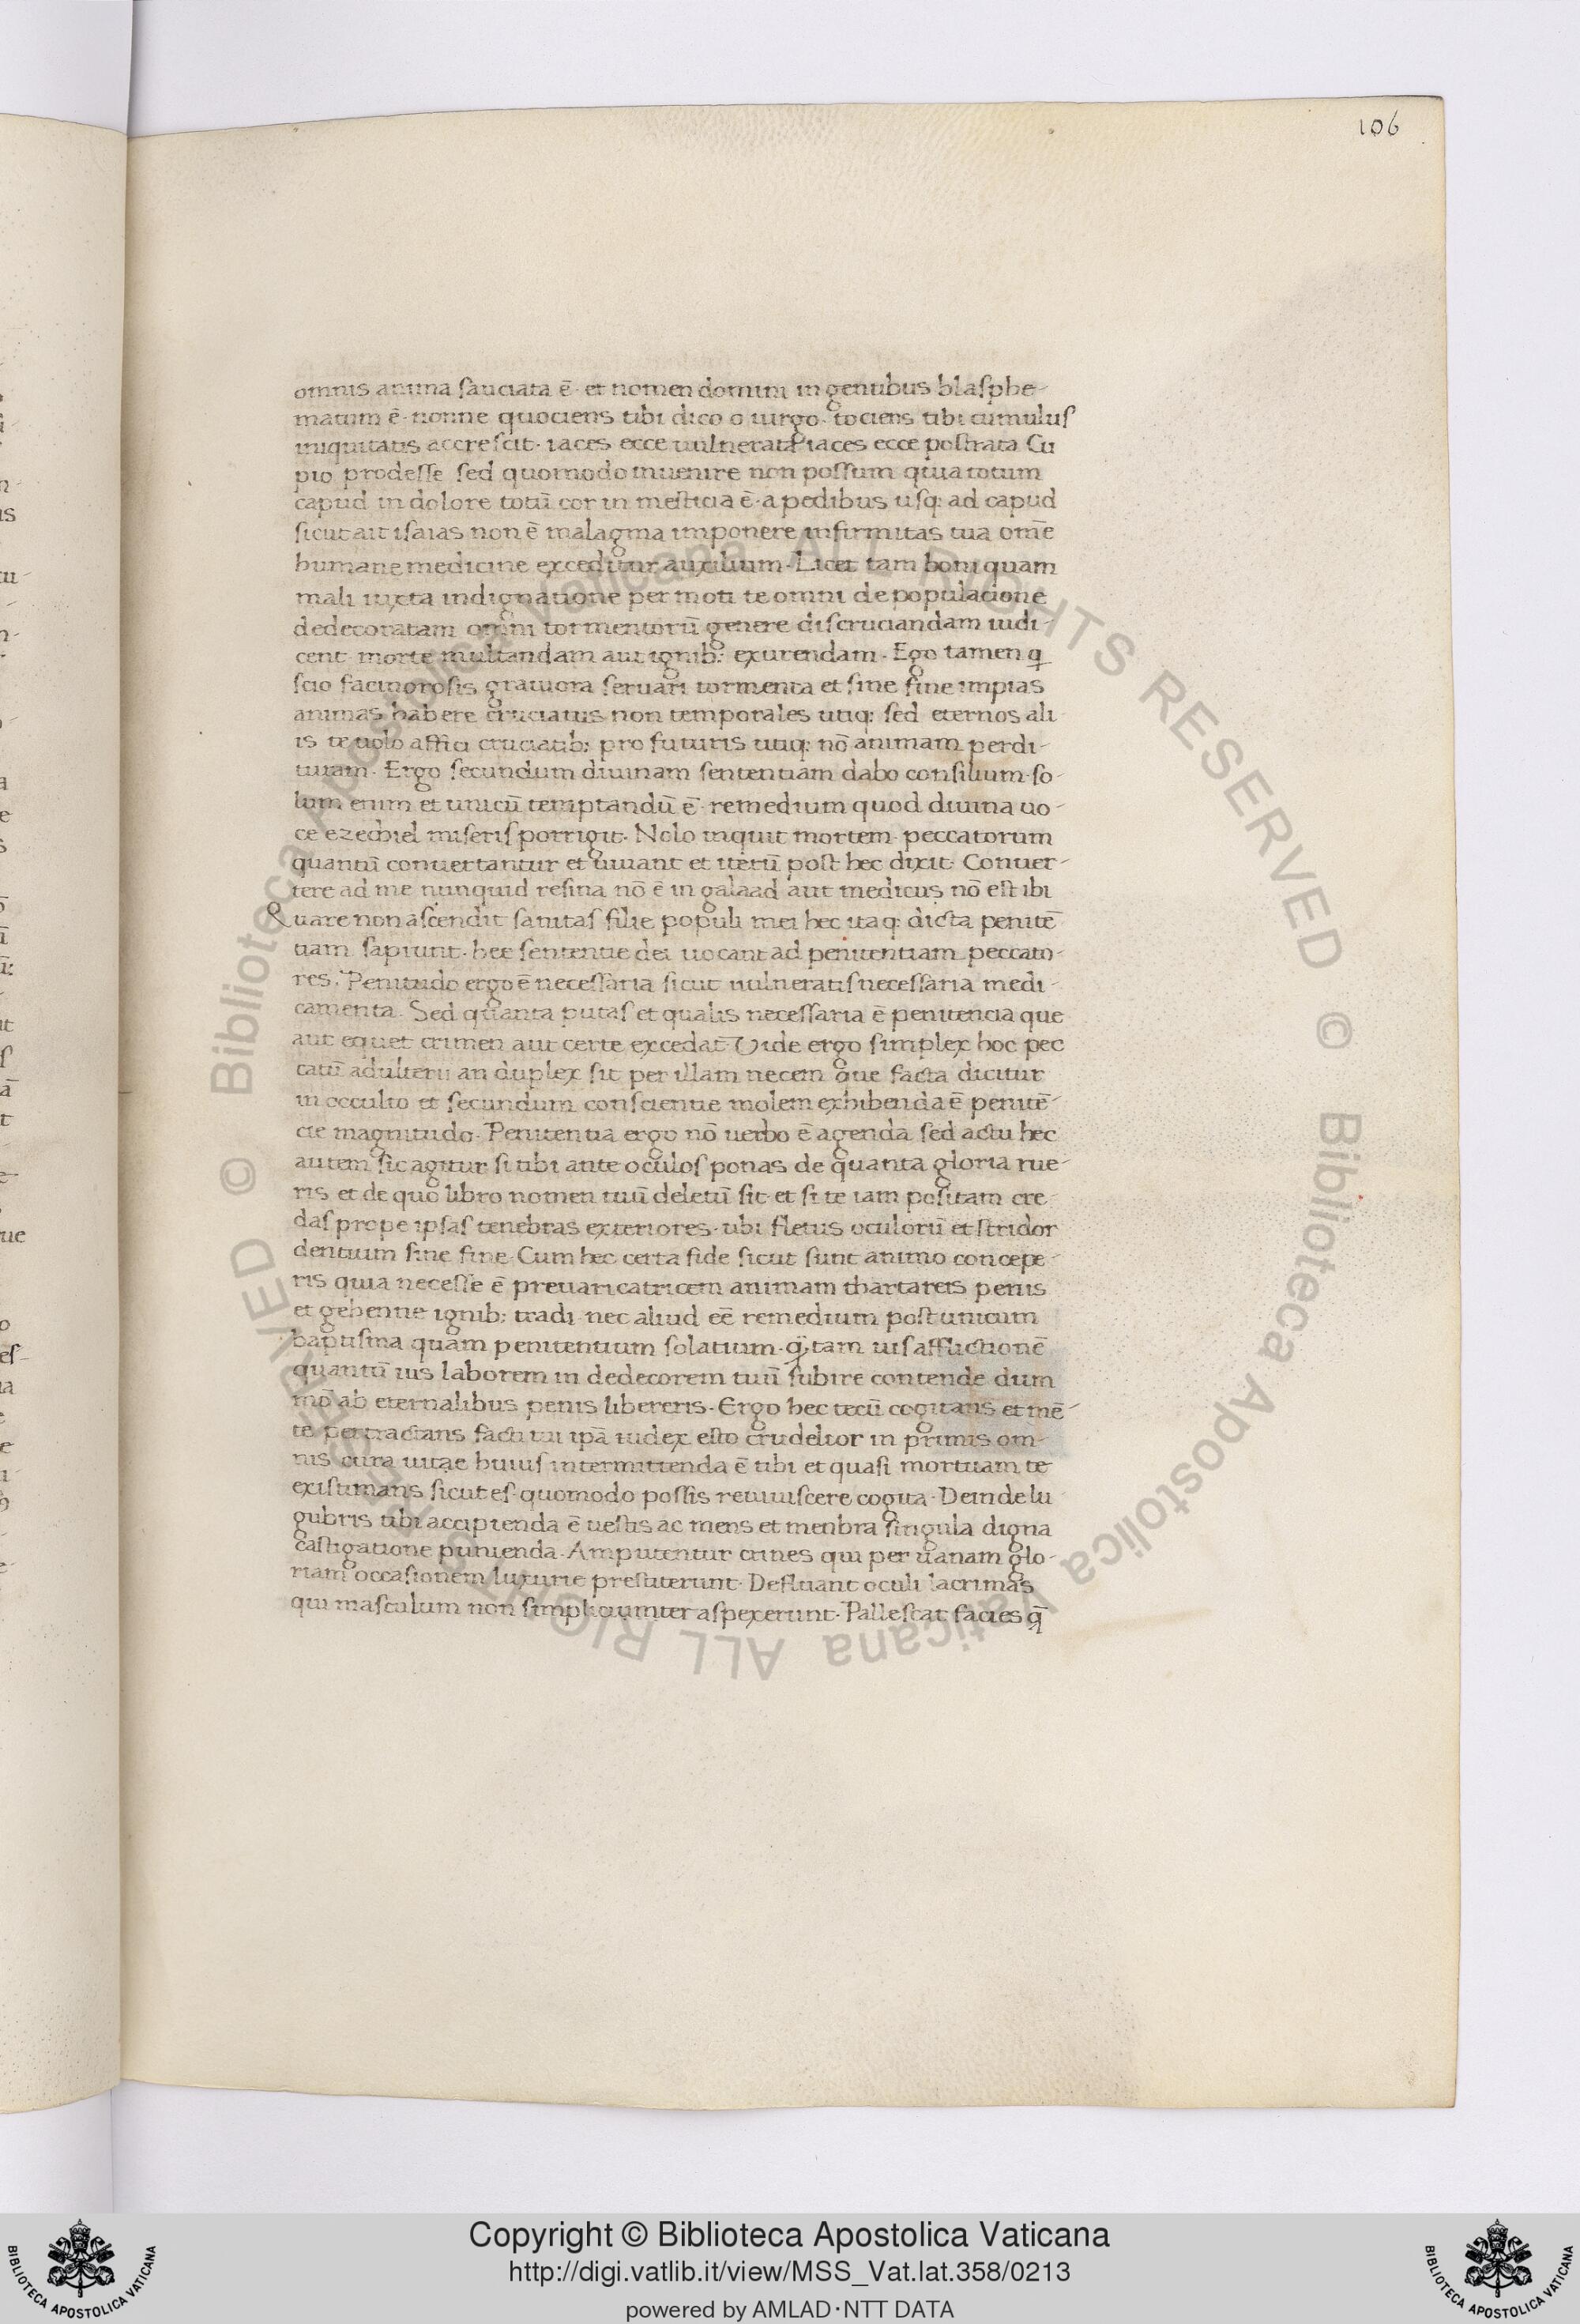 106
omnis anima sauciata ē· et nomen domini in gentibus blasphe-
matum ē· nonne quociens tibi dico o uirgo· tociens tibi cumulus
iniquitatis accrescit· iaces ecce uulnerata iaces ecce postrata Cu
pio prodesse sed quomodo inuenire non possum quia totum
capud in dolore totū cor in mesticia ē· a pedibus usq: ad capud
sicut ait isaias non ē malagma imponere infirmitas tua om̄e
humane medicine exceditur auxilium· Licet tam boni quam
mali iuxta indignatione permoti te omni depopulacione
dedecoratam omni tormentorū genere discruciandam iudi-
cent morte multandam aut ignib: exurendam· Ego tamen q
scio facinorosis grauiora seruari tormenta et sine fine impias
animas habere cruciatus non temporales utiq: sed eternos ali
is te uolo affici cruciatib: pro futuris utiq: nō animam perdi-
turam· Ergo secundum diuinam sententiam dabo consilium· so-
lum enim et unicū temptandū ē· remedium quod diuina uo-
ce ezechiel miseris porrigit· Nolo inquit mortem peccatorum
quantū conuertantur et uiuant et iterū post hec dixit· Conuer-
tere ad me nunquid resina nō ē in galaad aut medicus nō est ibi
Quare non ascendit sanitas filie populi mei hec itaq: dicta penitē
tiam sapiunt· hee sententie dei uocant ad penitentiam peccato-
res· Penitudo ergo ē necessaria sicut uulneratis necessaria medi-
camenta· Sed quanta putas et qualis necessaria ē penitencia que
aut equet crimen aut certe excedat Vide ergo simplex hoc pec
catū adulterii an duplex sit per illam necem que facta dicitur
in occulto et secundum conscientie molem exhibenda ē penitē-
cie magnitudo· Penitentia ergo nō uerbo ē agenda sed actu hec
autem sic agitur si tibi ante oculos ponas de quanta gloria rue-
ris et de quo libro nomen tuū deletū sit· et si te iam positam cre-
das prope ipsas tenebras exteriores· ubi fletus oculorū et stridor
dentium sine fine· Cum hec certa fide sicut sunt animo concepe-
ris quia necesse ē preuaricatricem animam thartareis penis
et gehenne ignib: tradi· nec aliud eē remedium post unicum
baptisma quam penitentium solatium· q̄tam uis afflictionē
quantū uis laborem in dedecorem tuū subire contende dum
mō ab eternalibus penis libereris· Ergo hec tecū cogitans et mē-
te pertractans facti tui ipā iudex esto crudelior in primis om-
nis cura uitae huius intermittenda ē tibi et quasi mortuam te
existimans sicut es· quomodo possis reuiuiscere cogita· Deinde lu
gubris tibi accipienda ē uestis ac mens et menbra singula digna
castigatione punienda· Amputentur crines qui per uanam glo-
riam occasionem luxurie prestiterunt· Defluant oculi lacrimas
qui masculum non simpliciter aspexerunt· Pallescat facies q̄
Copyright © Biblioteca Apostolica Vaticana
http://digi.vatlib.it/view/MSS_Vat.lat.358/0213
powered by AMLAD·NTT DATA